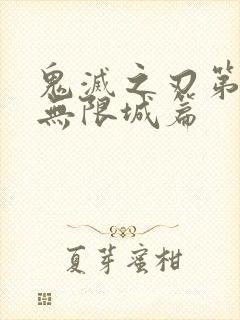 鬼滅之刃第
無限城篇
夏芽蜜柑